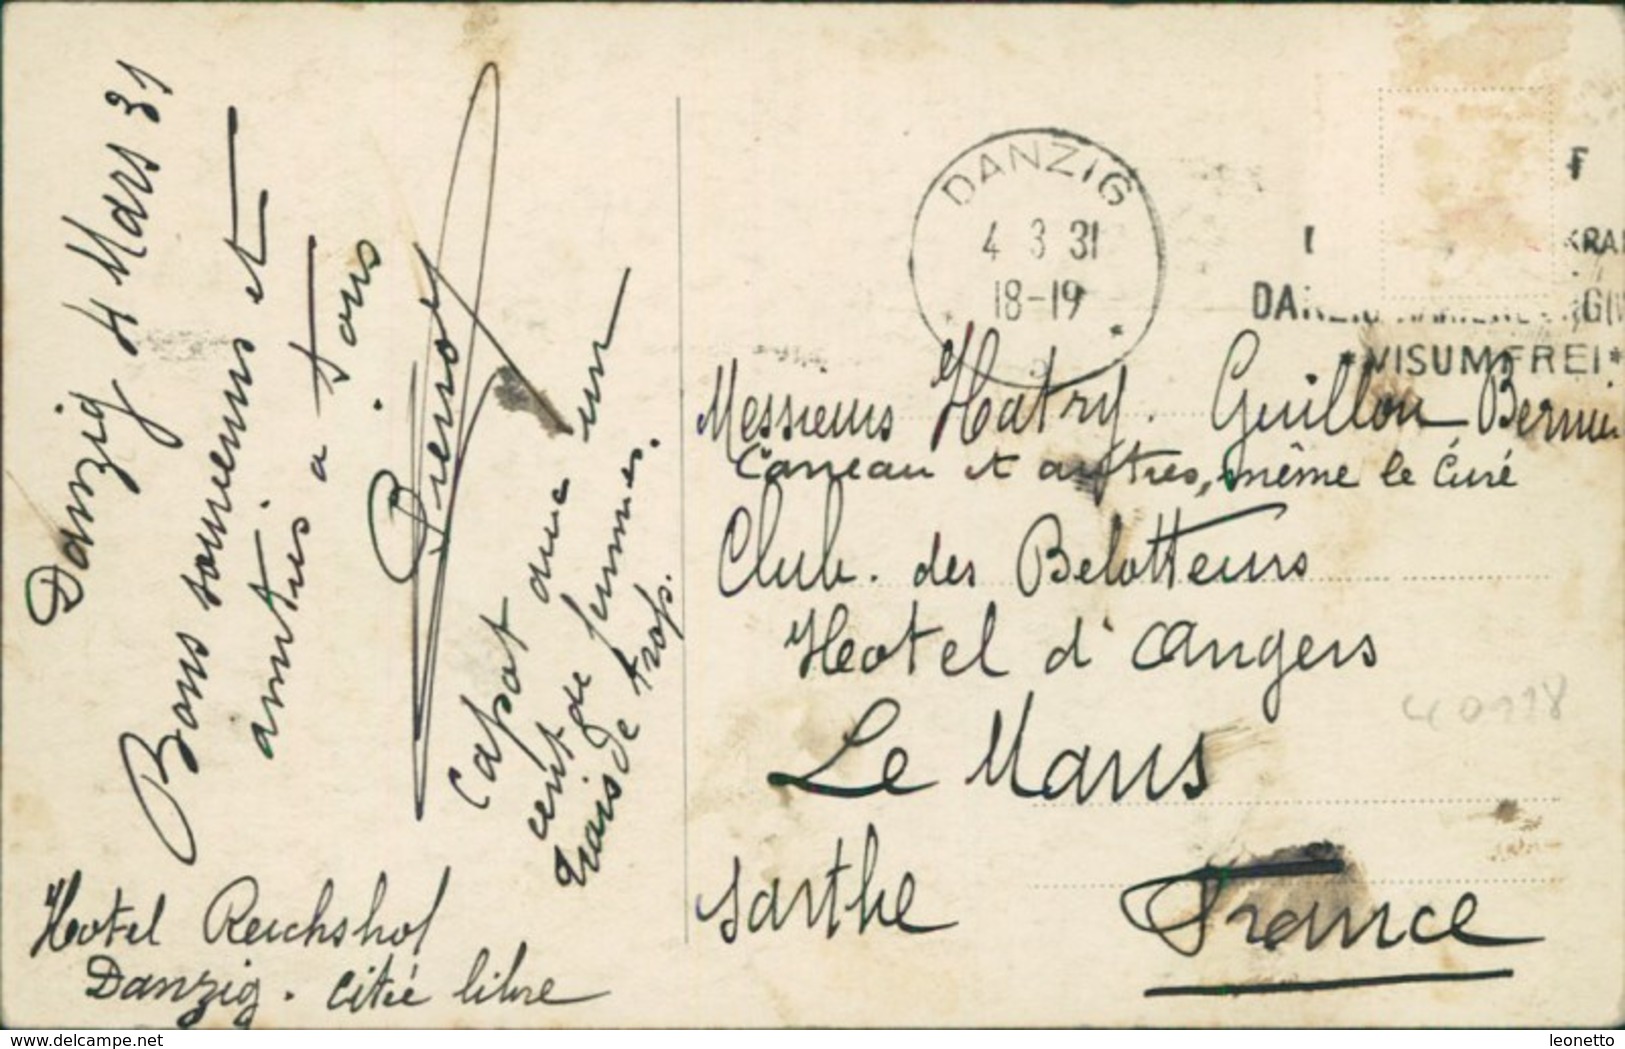 Danzig 4 Mars 31
Bons souvenirs et
amitiés a tous
Pierrot
Capot avec un
cent de femmes.
Mais de trop.
Hotel Reichshof
Danzig. Citée libre
DANZIG
4 3 31
18-19
*VISUMFREI*
Messieurs Hatry. Guillou Bernier
Carreau et autres, même le Curé
Club. des Belotteurs
Hotel d'Angers
Le Mans
Sarthe France
delcampe.net
leonetto